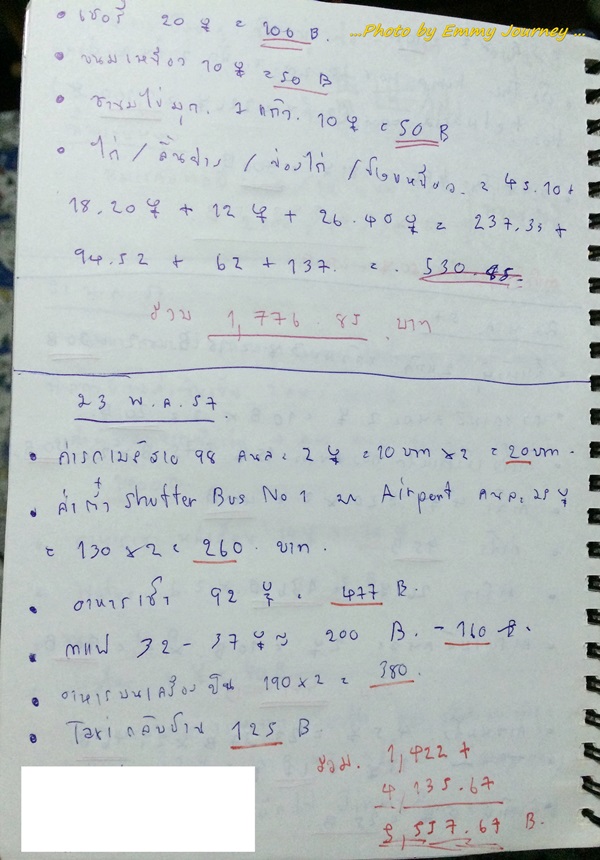 ...Photo by Emmy Journey...
• เชอรี่ 20 ¥ = 106 B.
• ขนมเหนียว 10 ¥ = 50 B
• ชานมไข่มุก. 1 แก้ว. 10 ¥ = 50 B
• ไก่ / / / = 45.10 +
18.20 ¥ + 12 ¥ + 26.40 ¥ = 237.35 +
94.52 + 62 + 137. = . 530.85
รวม 1,776.85 บาท
23 พ.ค. 57
• ค่ารถเมล์สาย 98 คนละ 2 ¥ = 10 บาท x2 = 20 บาท.
• ค่าตั๋ว Shutter Bus No 1 มา Airport คนละ 25 ¥
= 130 x 2 = 260 บาท.
• อาหารเช้า 92 ¥ . 477 B.
• กาแฟ 32 - 37 ¥ ≈ 200 B. - 160 B.
• อาหารบนเครื่องบิน 190 x 2 = 380.
• Taxi กลับบ้าน 125 B
รวม. 1,422 +
4,135.67
5,557.67 B.